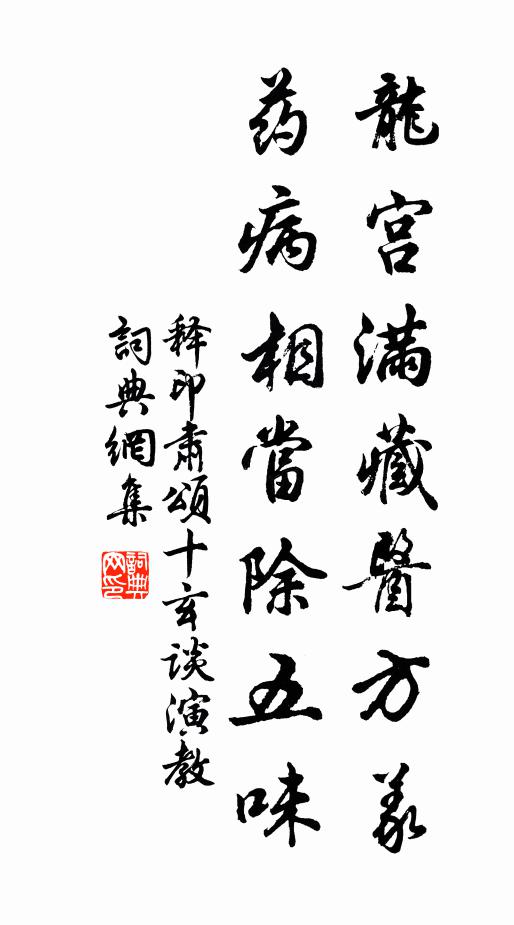 龍宮滿藏醫方義
药病相當除五味
释印肅頌十玄談演教
詞典網集
詞典網印